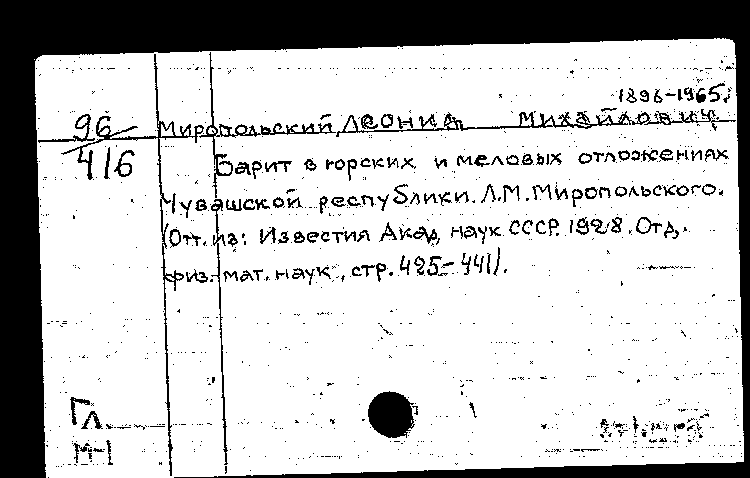 1896-1965.
96
416
Миропольский, Леонид Михайлович
Барит в юрских и меловых отложениях
Чувашской республики. Л.М. Миропольского.
(Отт. из: Известия Акад. наук СССР. 1928. Отд.
физ.-мат. наук, стр. 425-441).
Гл
М-1